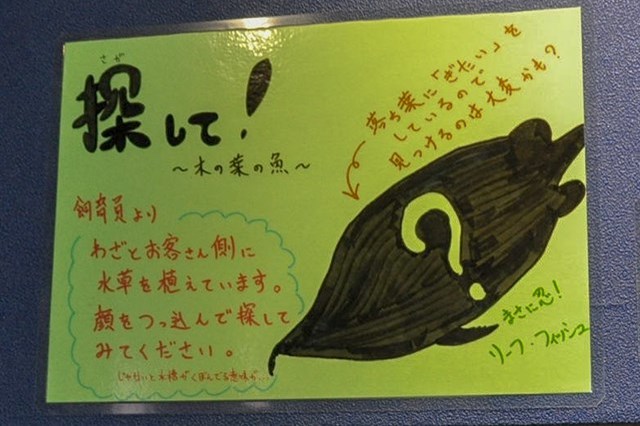 さが
探して!
~木の葉の魚~
落ち葉に「ぎたい」を
しているので
見つけるのは大変かも?
飼育員より
わざとお客さん側に
水草を植えています。
顔をつっ込んで探して
みてください。
じゃないと水槽がくぼんでる意味が…
?
まさに忍!
リーフ・フィッシュ